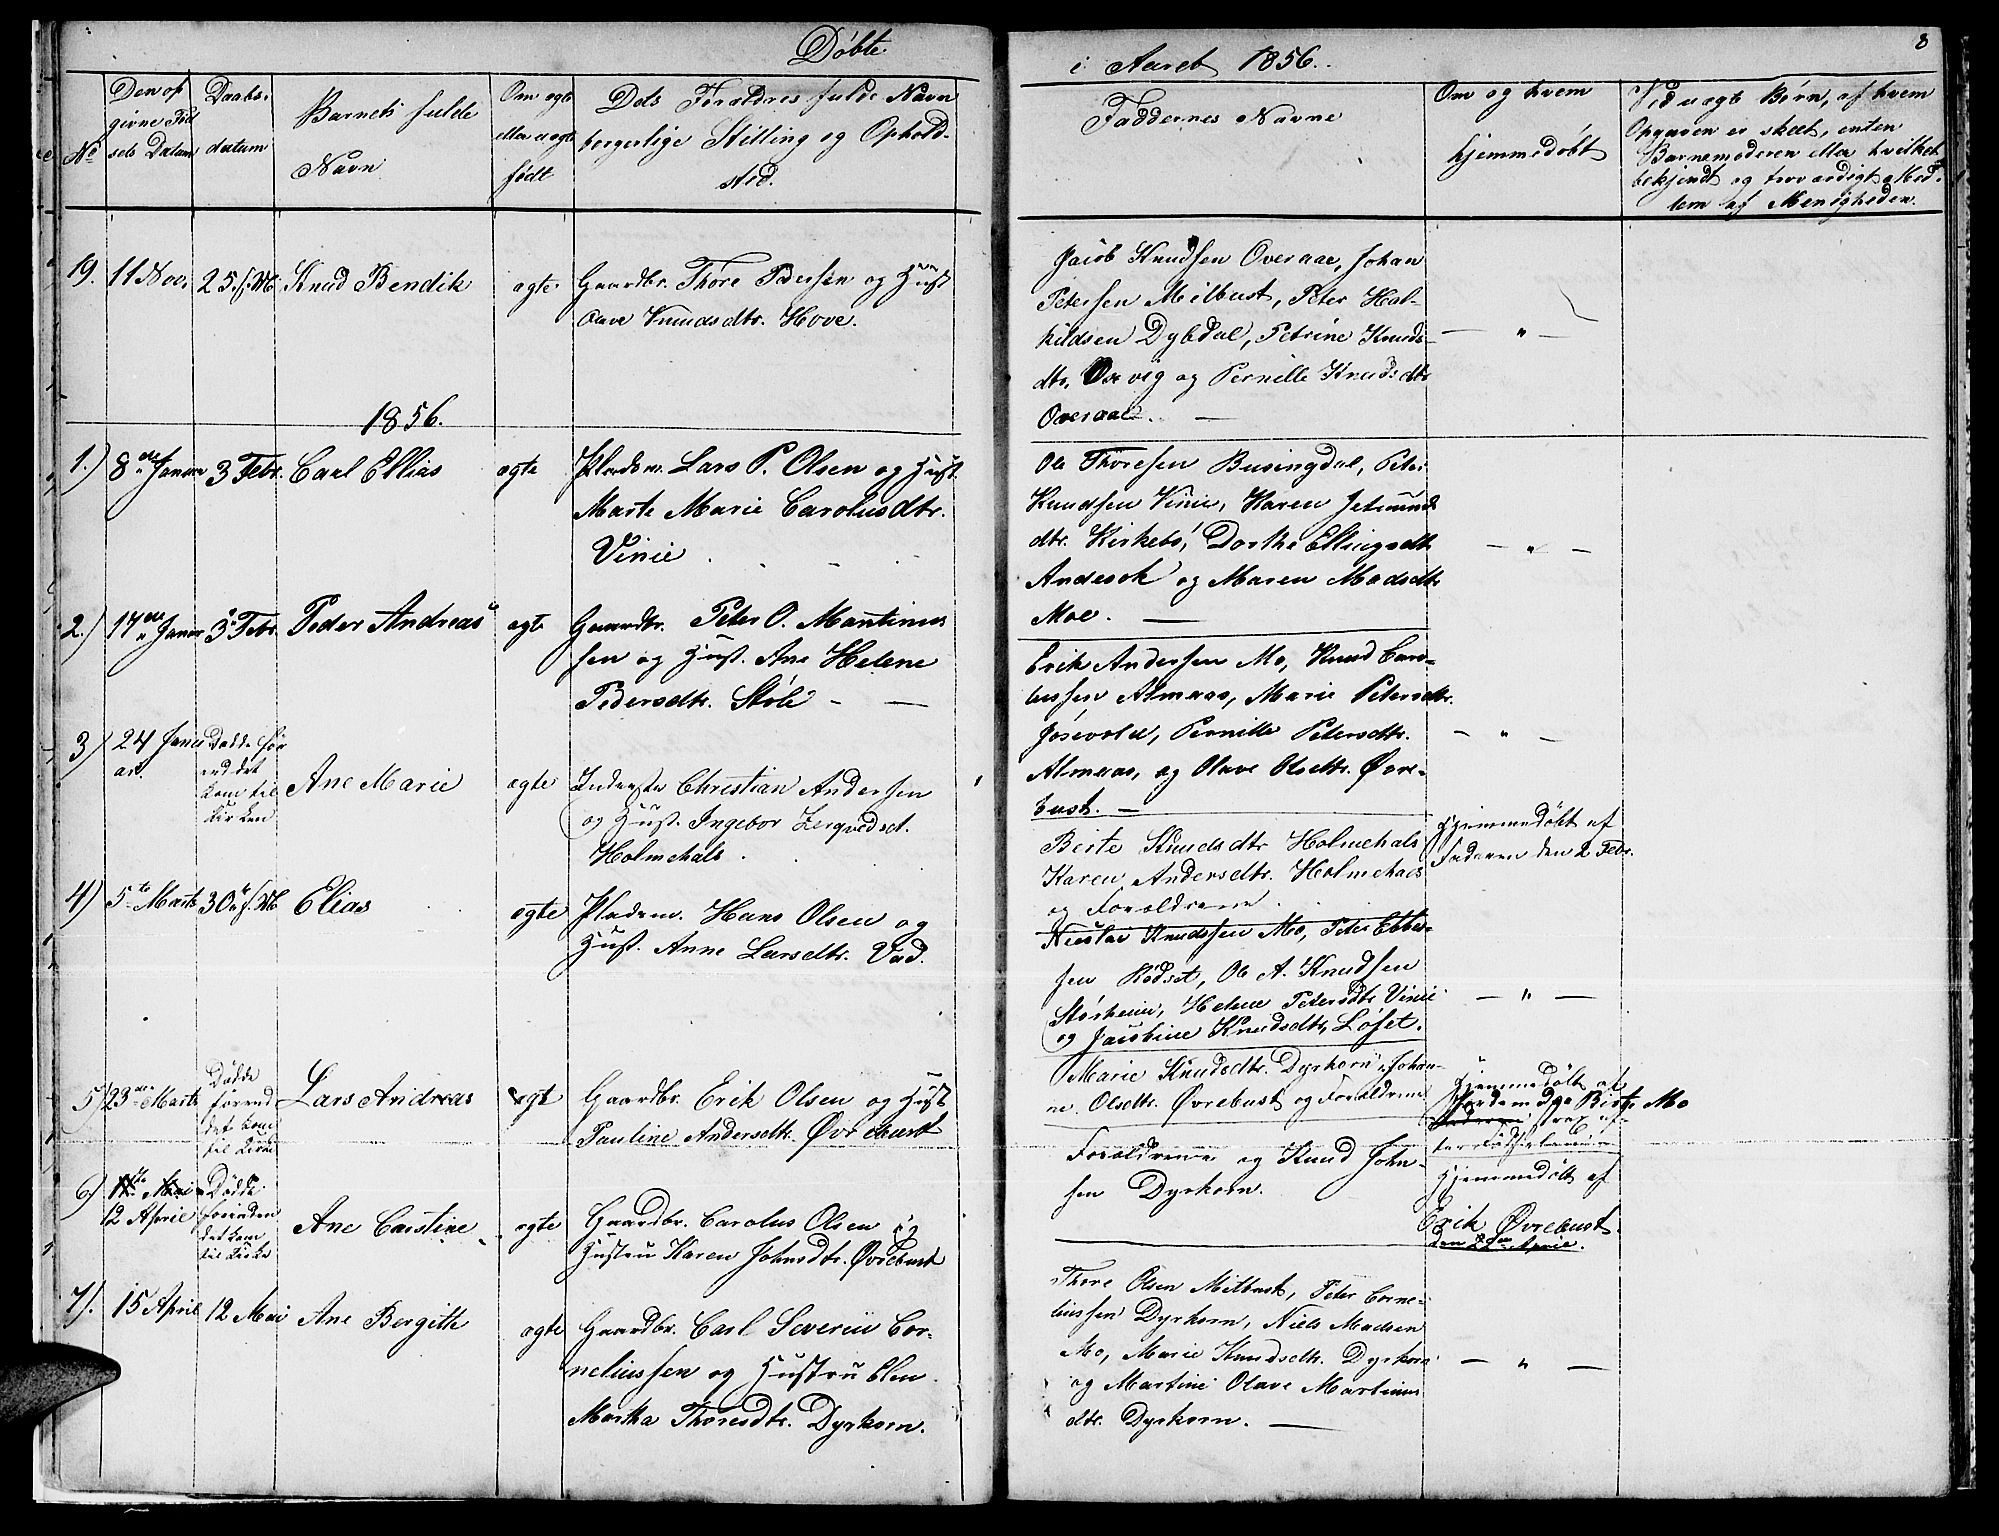 Døbte
i Aaret 1856.
8
No
Den op
givne Fød
sels Datum
Daabs-
datum
Barnets fulde
Navn
Om ægte
eller uægte
født
Dets Forældres fulde Navn
borgerlige Stilling og Ophold-
sted.
Faddernes Navne
Om og hvem
hjemmedøbt
Ved uægte Børn, af hvem
Opgaven er skeet, enten
Barnemoderen eller hvilket
bekjendt og troværdigt Med-
lem af Menigheden.
19. 11 Nov. 25. f. M Knud Bendik ægte
Gaardbr. Thore Pedersen og Hust
Olave Knudsdtr. Hove.
Jacob Knudsen Overaae, Johan
Petersen Melbust, Peter Hal-
kildsen Dybdal, Petrine Knuds-
dtr. Overvig og Pernille Knudsdtr
Overaae. —
— " —
1856.
1.) 8de Januar 3 Febr. Carl Ellias ægte
Pladsm. Lars P. Olsen og Hust.
Marte Marie Carolusdtr.
Vinie
Ole Thoresen Busingdal, Peter
Knudsen Vinie, Karen Jetmund
dtr. Kirkebø, Dorthe Ellingsdtr
Andesok og Maren Madsdtr
Moe. —
— " —
2.) 17de Januar 3 Febr. Peder Andreas ægte
Gaardbr. Peter O. Martinus
sen og Hust. Ane Helene
Pedersdtr. Støle — —
Erik Andersen Mo, Knud Caro-
lussen Almaas, Marie Petersdtr.
Jøsevold, Pernille Petersdtr.
Almaas, og Olave Olsdtr. Øvre-
bust. —
— " —
3) 24 Janu
ar.
Dødde før
end det
kom til
Kirken
Ane Marie ægte
Inderster Christian Andersen
og Hust. Ingebor
Holmehals.
Berte Knudsdtr Holmehals
Karen Andersdtr. Holmehals
og Forældrene.
Hjemmedøbt af
Faderen den 2 Febr.
4) 5te Marts 30 f. M Elias ægte
Pladsm. Hans Olsen og
Hust. Anne Larsdtr. Vad.
Nicolai Knudssen Mo, Peter Ebbe-
sen Rødset, Ole A. Knudsen
Størheim, Helene Petersdtr Vinie
og Jacobine Knudsdtr. Løset.
— " —
5) 23de Marts
Dødde
førend
det kom
til Kirke
Lars Andreas ægt
Gaardbr. Erik Olsen og Hust
Pauline Andersdtr. Øvrebust
Marie Knudsdtr. Dyrkorn, Johan-
ne Olsdtr. Øvrebust og Forældrene
Hjemmedøbt af
Jordemoder Birte Mo
strax ef-
ter Fødselen
6) 11te Mai
12 April
Dødde
førinden
det kom
til Kirke
Ane Caistine ægte
Gaardbr. Carolus Olsen og
Hustru Karen Johnsdtr. Øvrebust
Forældrene og Knud John-
sen Dyrkorn.
Hjemmedøbt af
Erik Øvrebust.
den April.
7). 15 April 12 Mai Ane Bergith ægte
Gaardbr. Carl Severin Cor-
neliussen og Hustru Elen
Martha Thoresdtr. Dyrkorn.
Thore Olsen Melbust, Peter Corne-
liussen Dyrkorn, Niels Madsen
Mo, Marie Knudsdtr. Dyrkorn
og Martine Olave Martinus
dtr. Dyrkorn. —
— " —